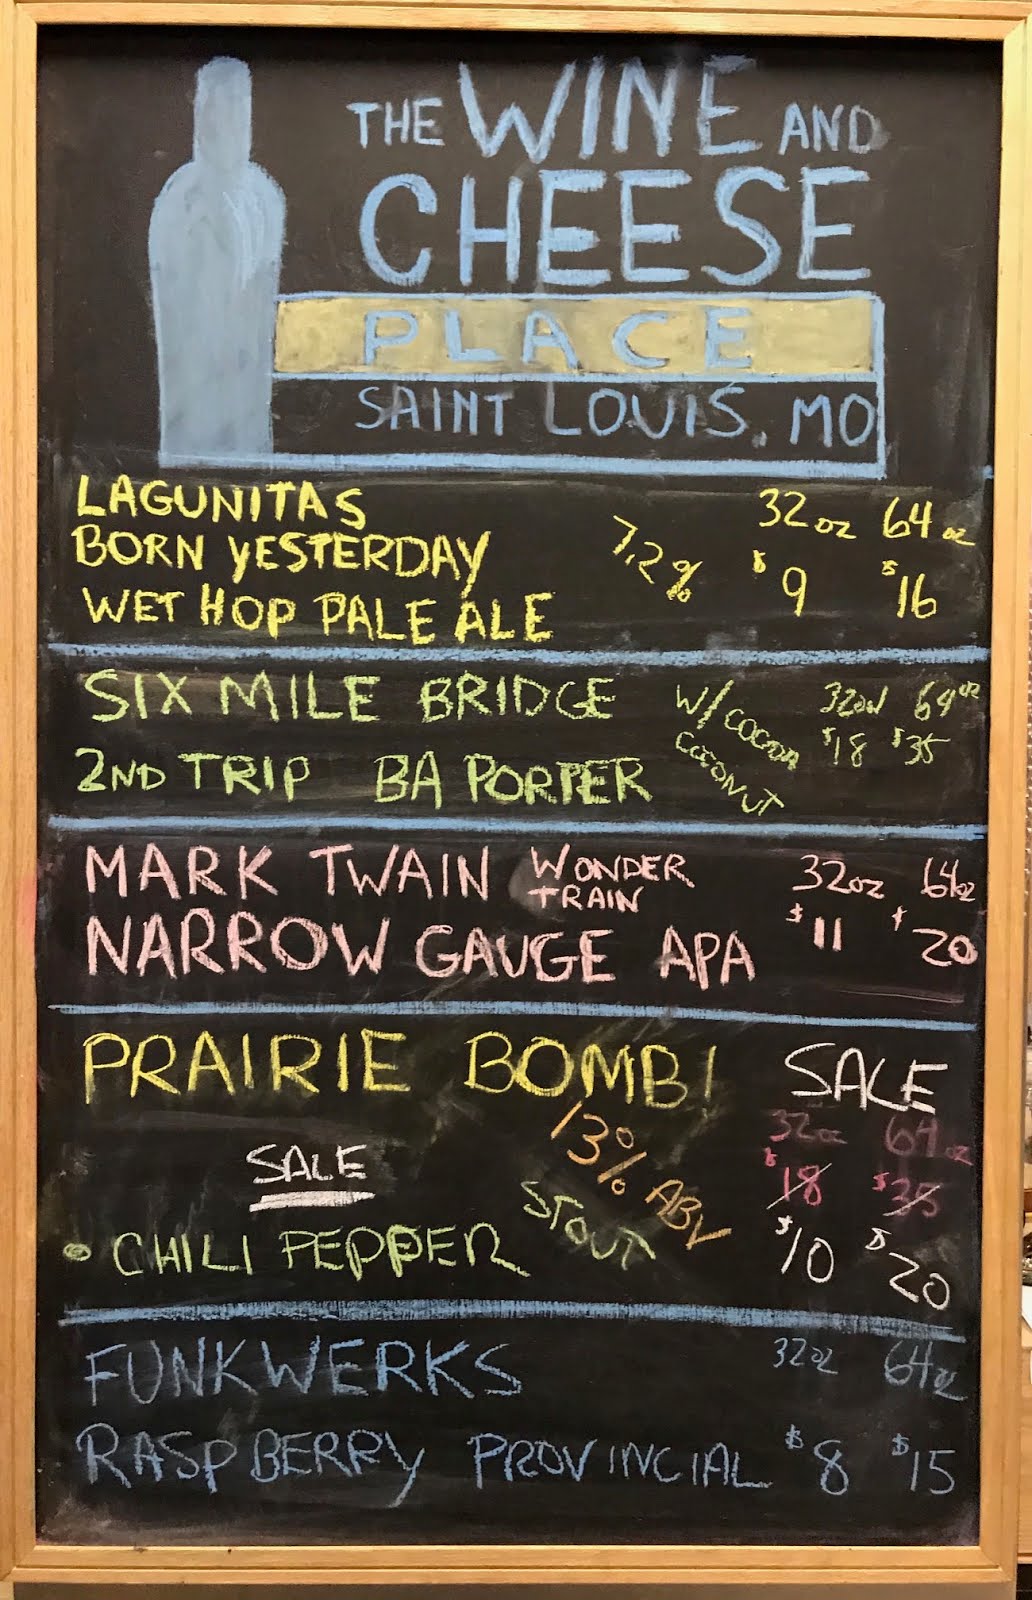 THE WINE AND
CHEESE
PLACE
SAINT LOUIS, MO
LAGUNITAS
BORN YESTERDAY
WET HOP PALE ALE
7.2%
32 oz 64 oz
$9 $16
SIX MILE BRIDGE
2ND TRIP BA PORTER
W/ COCOA
COCONUT
32oz 64oz
$18 $35
MARK TWAIN WONDER
TRAIN
NARROW GAUGE APA
32oz 64oz
$11 $20
PRAIRIE BOMB!
SALE
13% ABV
STOUT
• CHILI PEPPER
SALE
32oz 64oz
$18 $35
$10 $20
FUNKWERKS
RASPBERRY PROVINCIAL
32oz 64oz
$8 $15